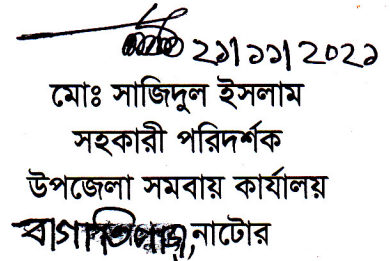 ২১/১১/2০২১
মোঃ সাজিদুল ইসলাম
সহকারী পরিদর্শক
উপজেলা সমবায় কার্যালয়
বাগাতিপাড়া, নাটোর